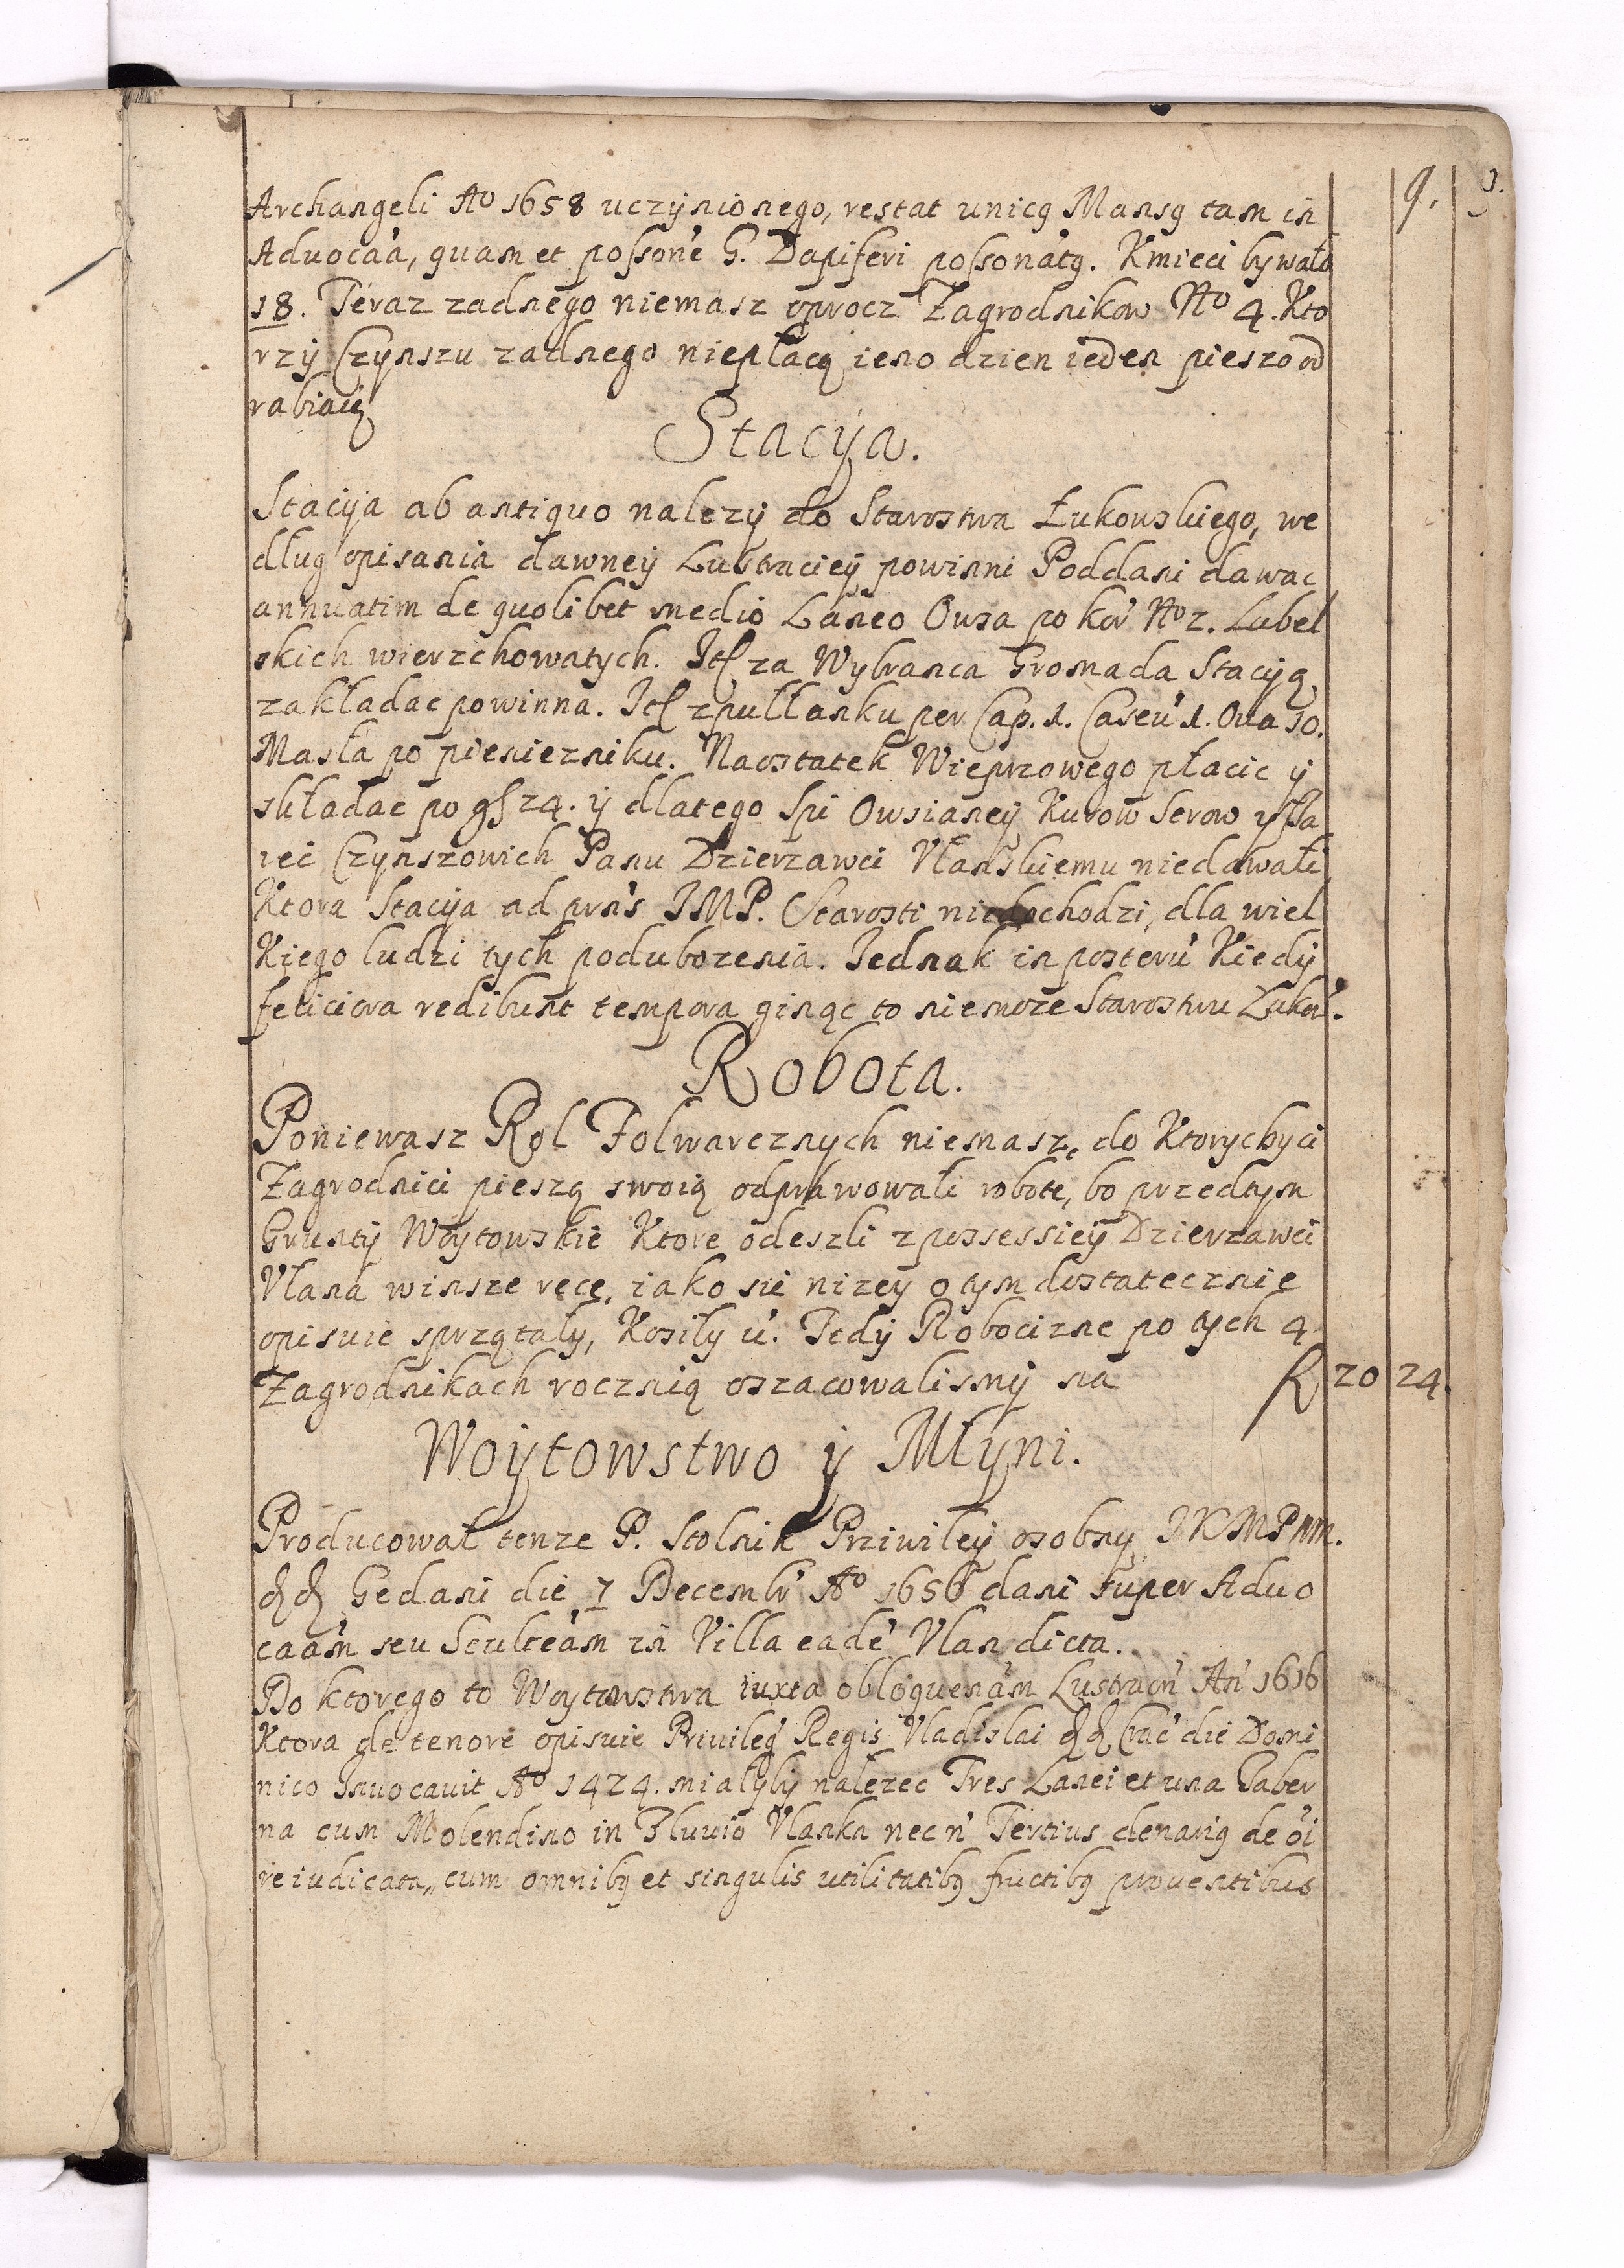 9. 9.
Archangeli Aº 1658 uczÿnionego, restat unicq Mansq tam in
Aduocaâ, quam et possone G. Dapiferi possonatq. Kmieci bÿwało
18. Teraz zadnego niemasz oprocz Zagrodnikow Nº 4. Kto
rzÿ Czÿnszu zadnego niepłacą ieno dzien ieden pieszo od
rabiaią
Stacÿa.
Stacÿa ab antiquo nalezÿ do Starostwa Łukowskiego, we
dług opisania dawneÿ Lustracieÿ powinni Poddani dawac
annuatim de quolibet medio Laneo Owsa po kor Nº 2. Lubel
skich wierzchowatych. It za Wybranca Gromada Stacÿą
zakładac powinna. It zpułłanku per Cap. 1. Caseu 1. Oua 10.
Masła po piesierniku. Naostatek Wieprzowego płacic ÿ
składac po gs 24. ÿ dlatego Spi Owsianeÿ Kurow Serow ÿ Ja
iec Czÿnszowich Panu Dzierzawci Vłanskiemu niedawali
Ktora Stacÿa ad prns JMP. Starosti niedochodzi, dla wiel
Kiego ludzi tych podubozenia. Jednak in posteru Kiedÿ
feliciora redibunt tempora ginąc to niemoze Starostwu Łukow.
Robota.
Poniewasz Rol Folwarcznych niemasz, do Ktorychbÿ ci
Zagrodnici pieszą swoią odprawowali robote, bo przedtym
Gruntÿ Woÿtowskie Ktore odeszli z possessieÿ Dzierzawci
Vłana winsze ręce, iako sie nizeÿ o tym dostatecznie
opisuie sprzątaly, Kosily ú. Tedÿ Robocizne po tych 4
Zagrodnikach rocznią oszacowalismÿ na f 20 24.
Woÿtowstwo ÿ Młÿni.
Producował tenze P. Stolnik Priwileÿ osobny JKMPNM.
dd Gedani die 7 Decembr Aº 1656 dani super Aduo
caám seu Sculteám in Villa eadé Vlan dicta.
Do ktorego to Woytowstwa iuxta obloquenám Lustraon An 1616
Ktora de tenore opisuie Priuileg Regis Vladislai dd Crac die Domi
nico Inuocauit Aº 1424. mialyby nalezec Tres Lanei et una Taber
na cum Molendino in Fluuio Vlanka nec n Tertius denariq de oi
re iudicata, cum omnibq et singulis utilitatibq fructibq prouentibus